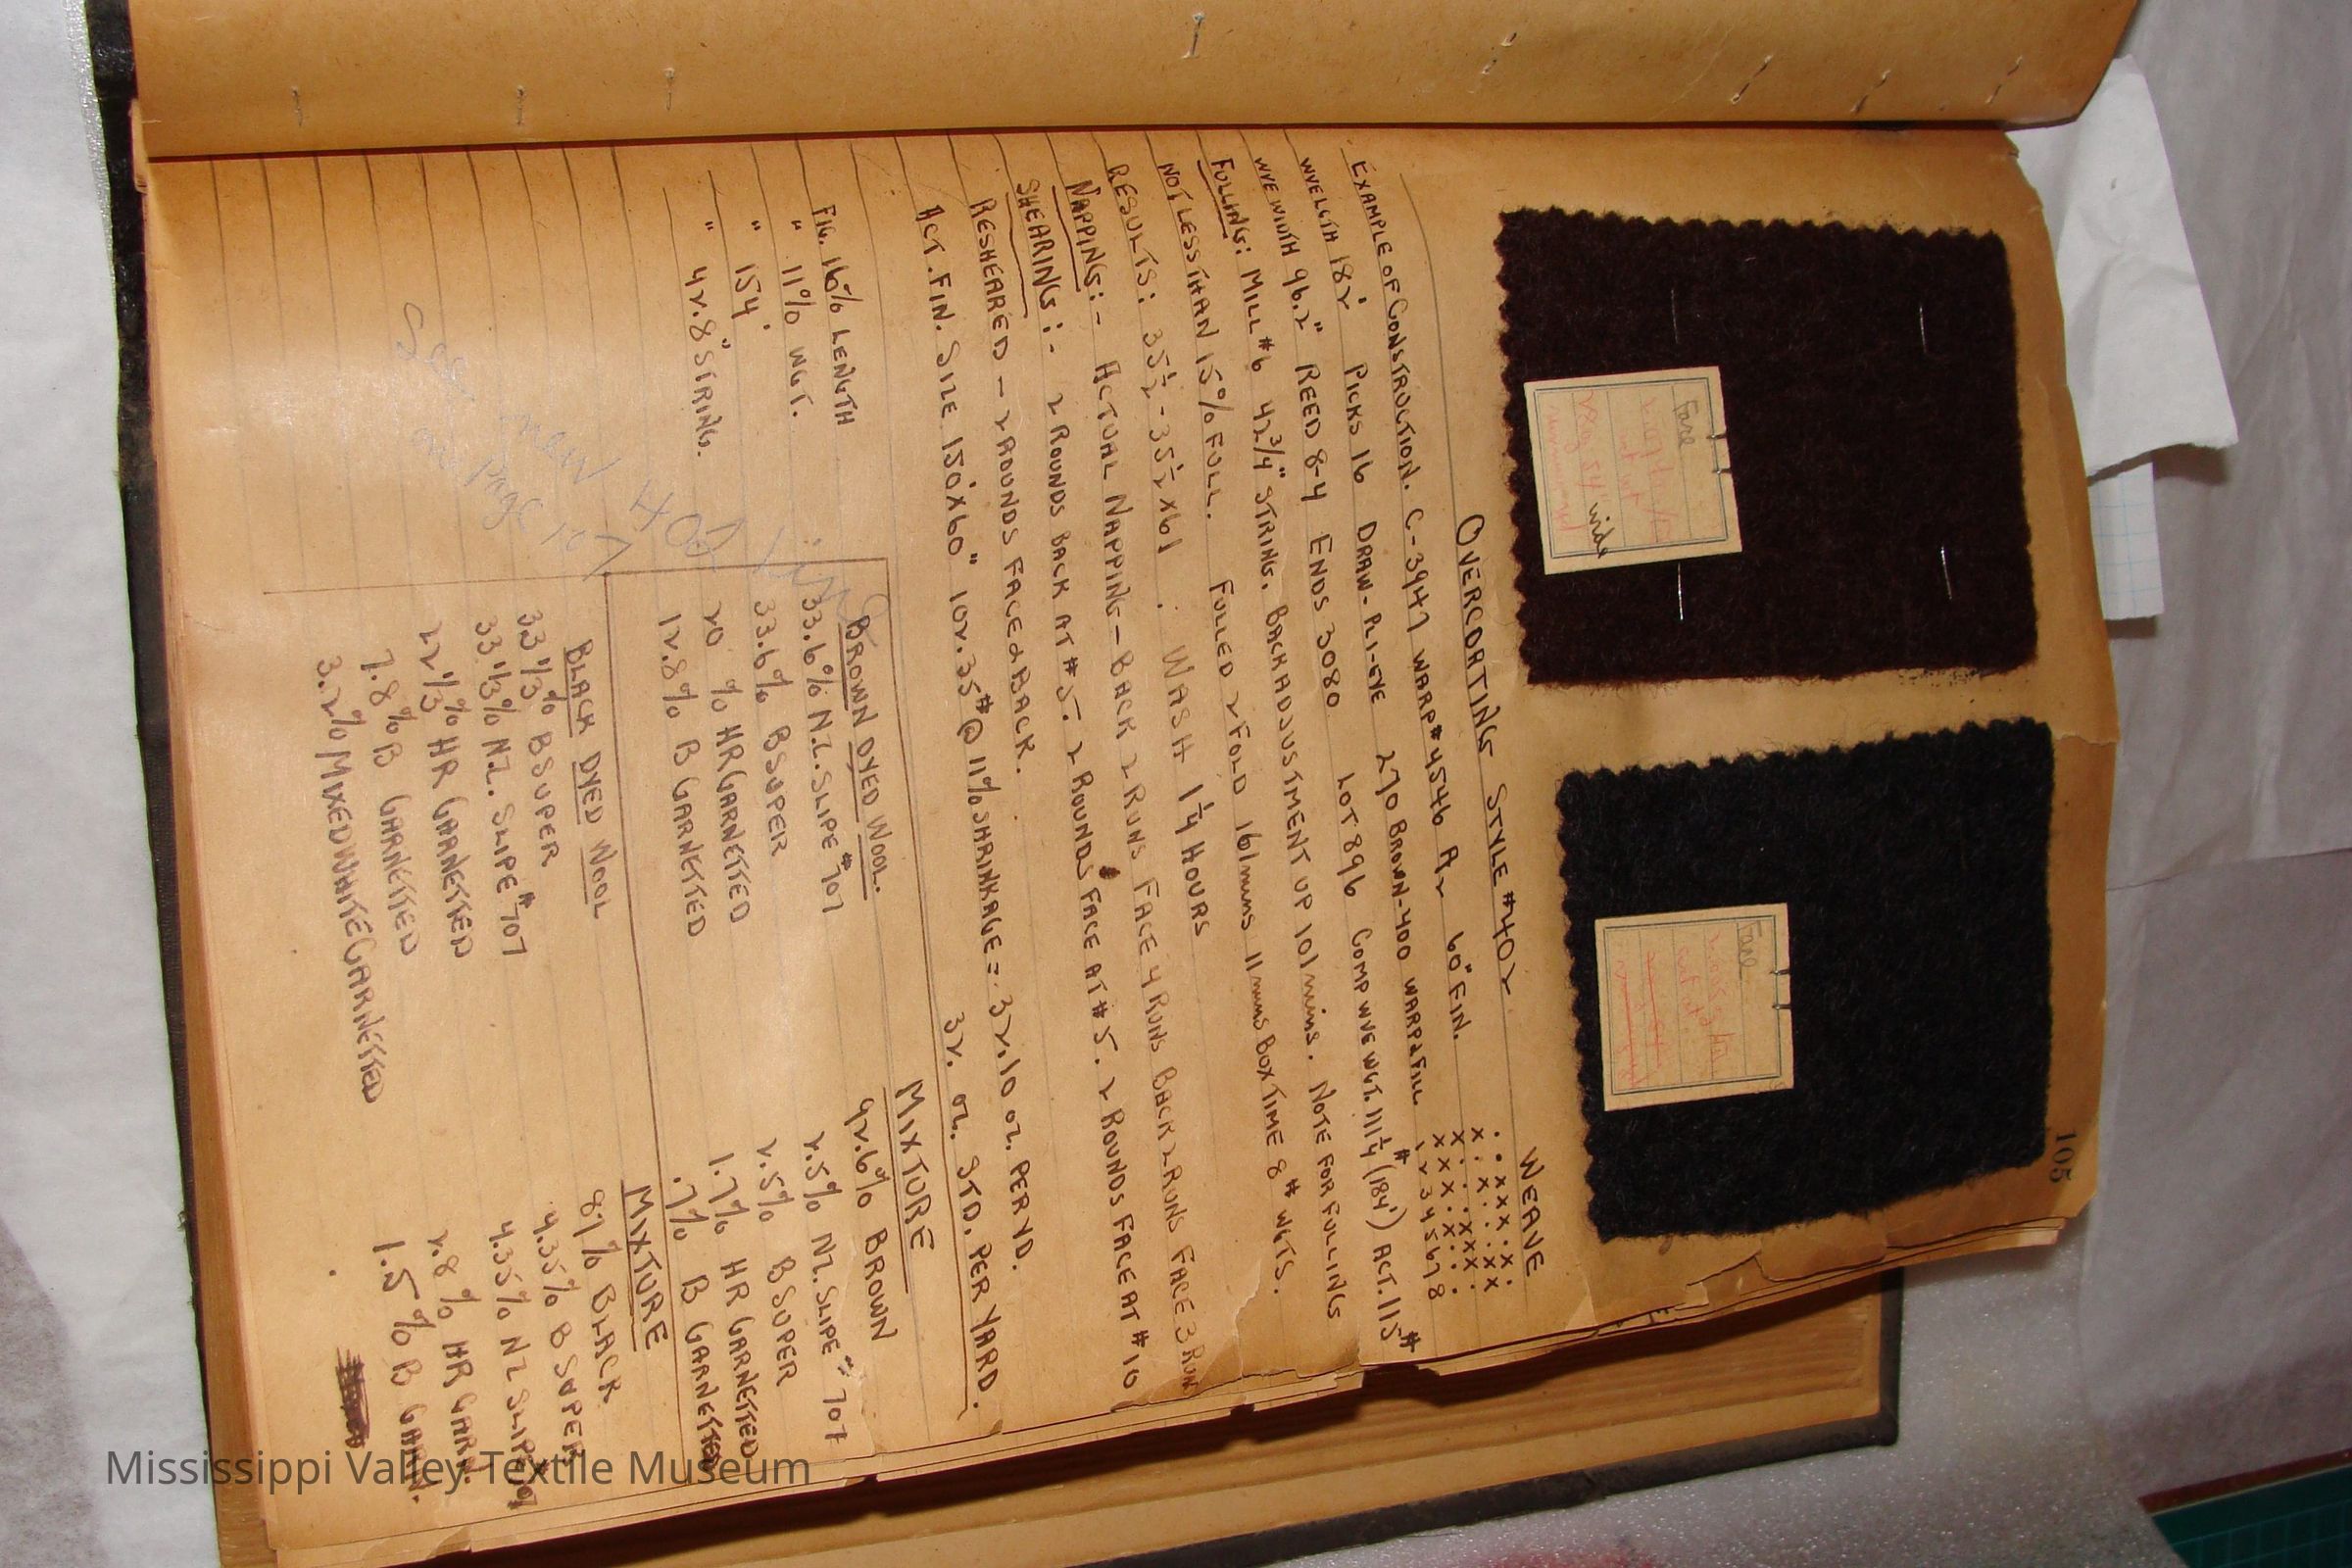 105
Face
Face
wide
OVERCOATING STYLE #402
WEAVE
EXAMPLE OF CONSTRUCTION. C-3947 WARP #4546 R2 60" FIN.
WVE LGTH 182' PICKS 16 DRAW-PL1-EYE 270 BROWN-400 WARP & FILL
1 2 3 4 5 6 7 8
WVE WIDTH 96.2" REED 8-4 ENDS 3080 LOT 896 COMP WVE WGT. 111¼# (184') ACT. 115#
FULLING: MILL #6 42¾" STRING. BACK ADJUSTMENT UP 10/mins. NOTE FOR FULLINGS
NOT LESS THAN 15% FULL. FULLED 2 FOLD 16/mins 11 mins BOX TIME 8# WGTS.
RESULTS: 35½-35½ X 61 . WASH 1¼ HOURS
NAPPING:- ACTUAL NAPPING-BACK 2 RUNS FACE 4 RUNS BACK 2 RUNS FACE 3 RUNS
SHEARING:- 2 ROUNDS BACK AT #5. 2 ROUNDS FACE AT #5. 2 ROUNDS FACE AT #10
RESHEARED - 2 ROUNDS FACE & BACK.
ACT. FIN. SIZE 150' X 60" 102.35# @ 11% SHRINKAGE = 32.10 OZ. PER YD.
32. OZ. STD. PER YARD.
FIG. 16% LENGTH
" 11% WGT.
" 154'
" 42.8" STRING.
See new
BROWN DYED WOOL.
33.6% N.Z. SLIPE #707
33.6% B SUPER
20 % HR GARNETTED
12.8% B GARNETTED
MIXTURE
92.6% BROWN
2.5% NZ. SLIPE #707
2.5% B SUPER
1.7% HR GARNETTED
.7% B GARNETTED
BLACK DYED WOOL
33⅓% B SUPER
33⅓% N.Z. SLIPE #707
22⅓% HR GARNETTED
7.8% B GARNETTED
3.2% MIXED WHITE GARNETTED
MIXTURE
87% BLACK
4.35% B SUPER
4.35% NZ SLIPE #707
2.8% HR GARN.
1.5% B GARN.
Mississippi Valley Textile Museum